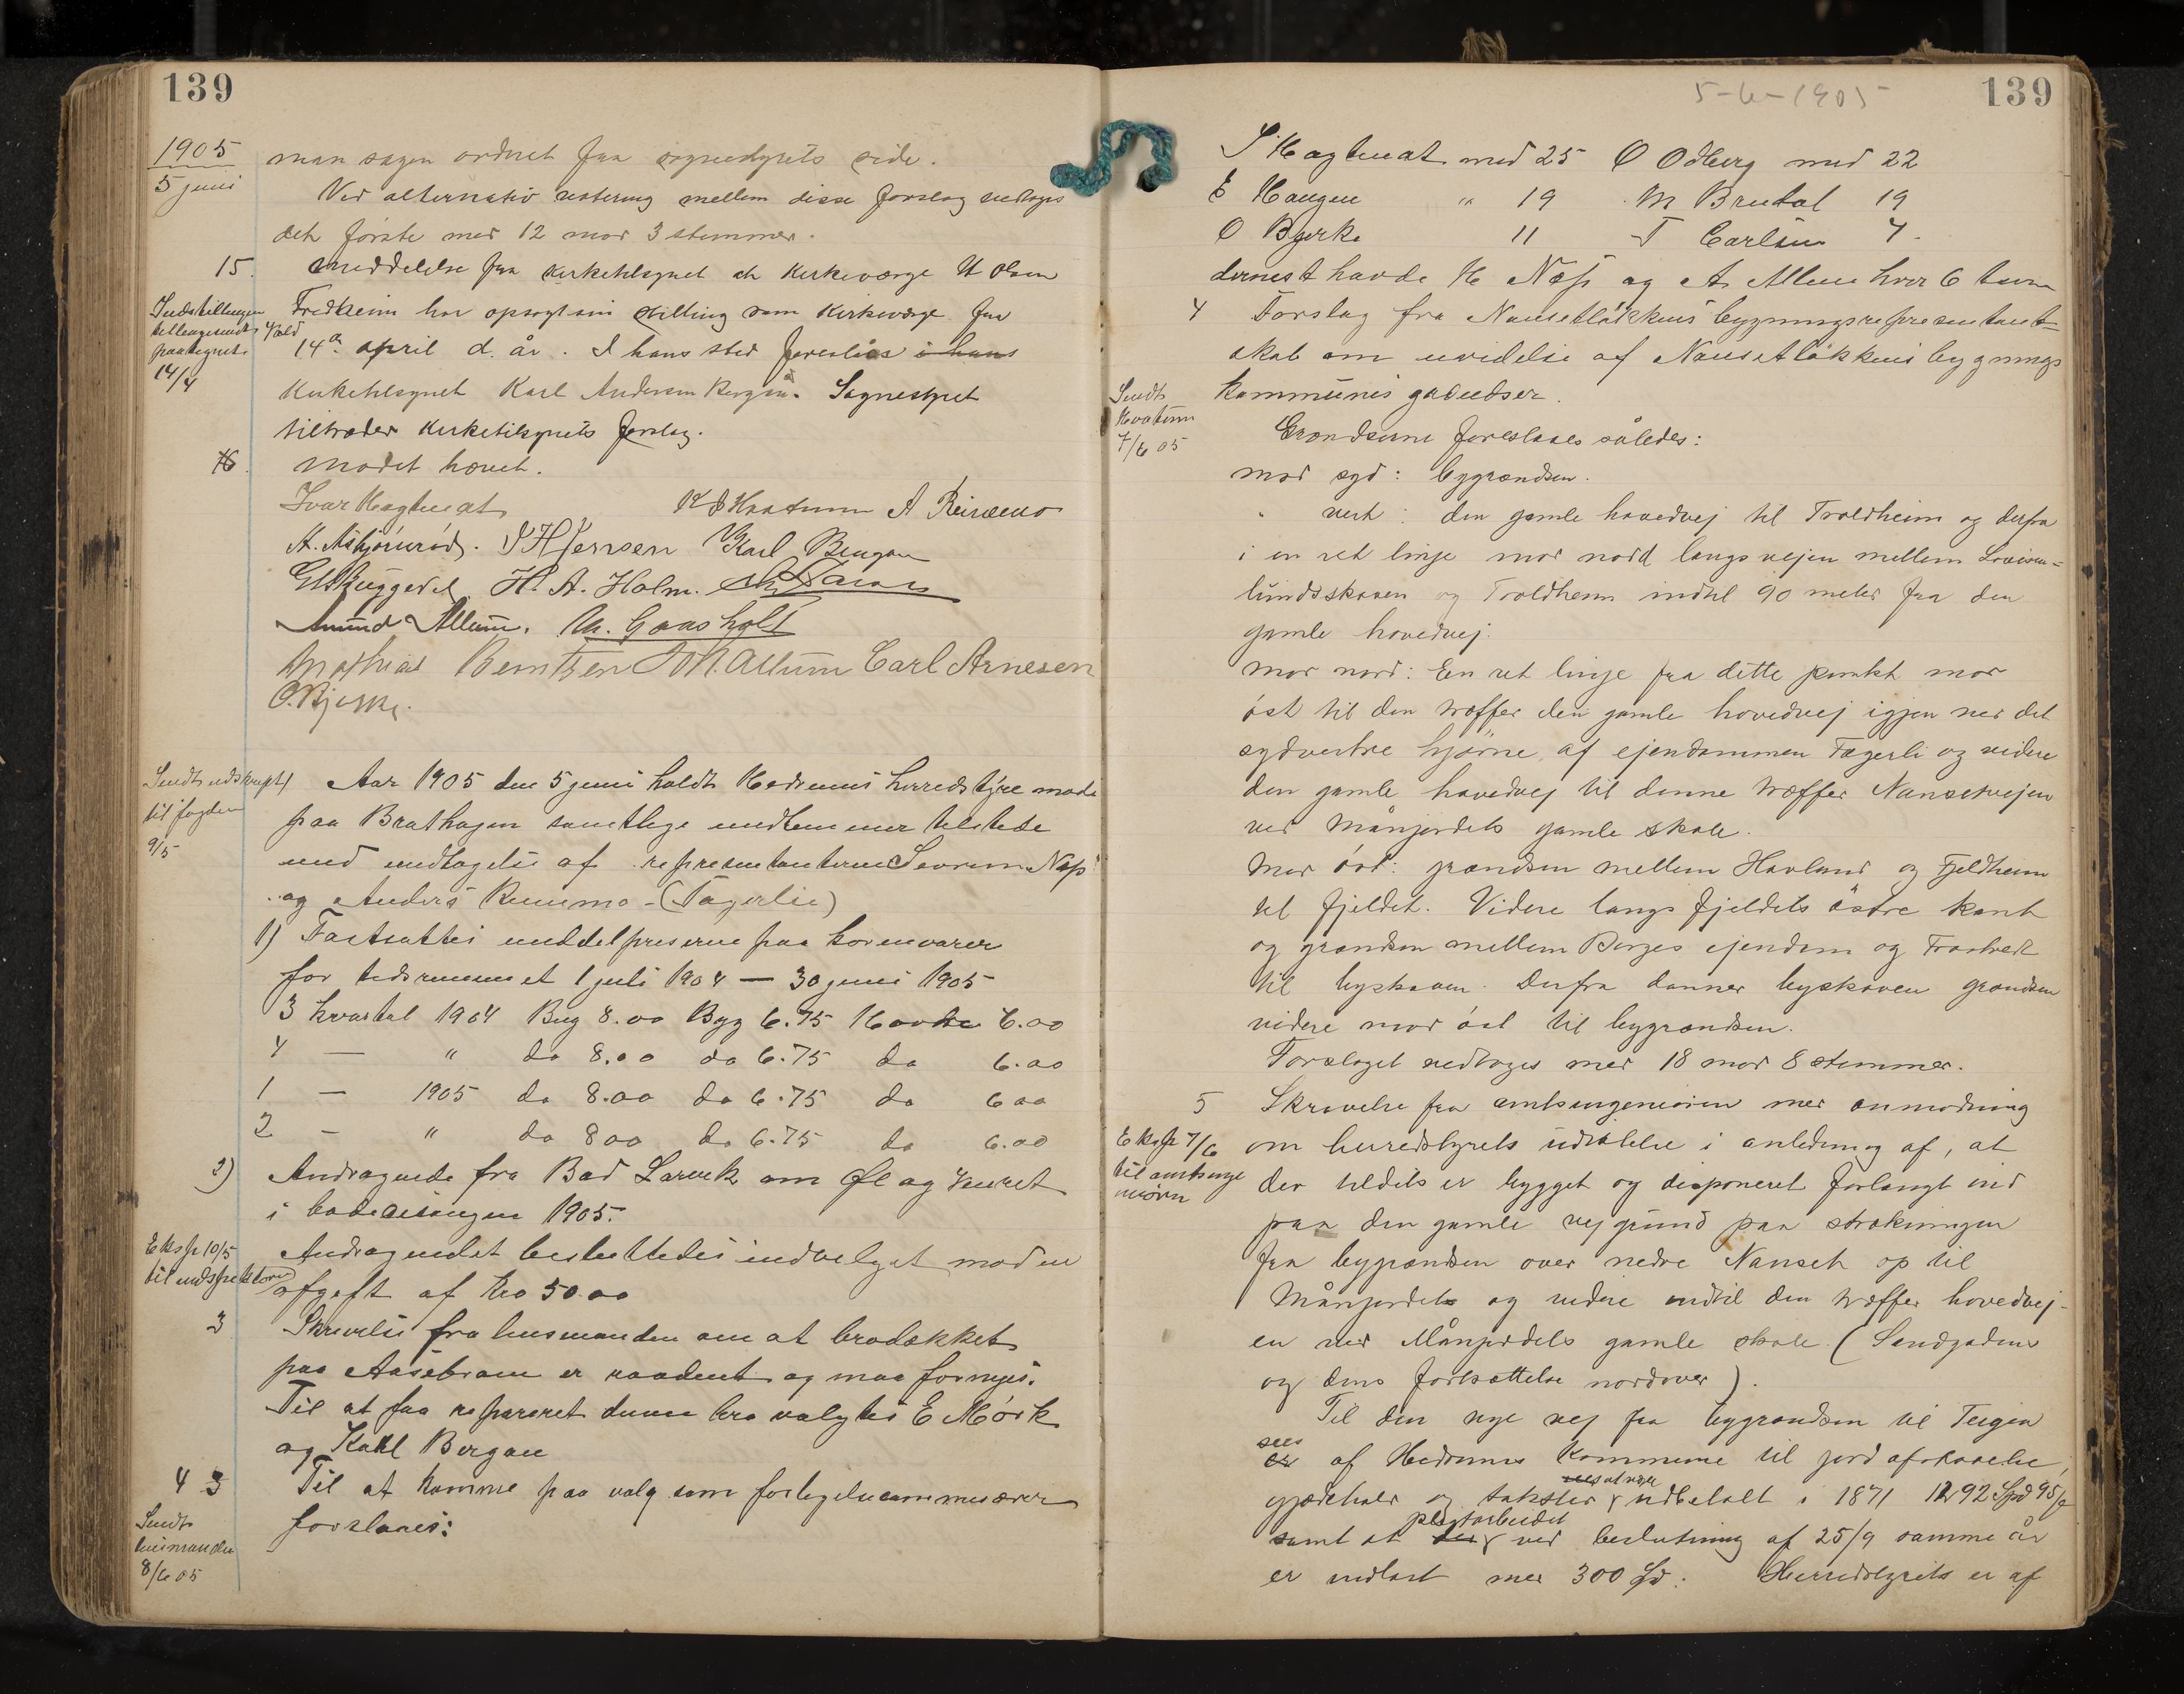 139
1905
5 juni
man sagen ordnet fra sognestyrets side.
Ved alternativ votering mellem disse forslag vedtoges
det første med 12 mod 3 stemmer.
15. Meddelelse fra kirketilsynet at kirkeværge H Olsen
Fredheim har opsagt sin stilling som kirkeværge fra
14de april d. år. I hans sted foreslåes i hans
kirketilsynet Karl Andersen Bergan. Sognestyret
tiltræder kirketilsynets forslag.
Indstillingen
tilbagesendt
paategnet
14/4
16. Mødet hævet.
Ivar Hagtvedt A Reinemo
A. Asbjørnrød. Karl Bergan
H. A. Holm.
Amund Allum. M. Gaasholt
Mathias Berntsen M. Allum Carl Arnesen
O. Bjerke.
Sendt udskrift
til fogden
9/5
Aar 1905 den 5 juni holdt Hedrums herredstyre møde
paa Brathagen samtlige medlemmer tilstede
med undtagelse af representanterne Severin Næss
og Anders Rimmo - (Fagerlie)
1) Fastsattes middelpriserne paa kornvarer
for tidsrummet 1 juli 1904 — 30 juni 1905
3 kvartal 1904 Bug 8.00 Byg 6.75 Havre 6.00
4 — " do 8.00 do 6.75 do 6.00
1 — 1905 do 8.00 do 6.75 do 6 00
2 — " do 8 00 do 6.75 do 6.00
2) Andragende fra Bad Larvik om Øl og vinret
i badesæsongen 1905.
Eksp 10/5
til
Andragendet besluttedes indvilget mod en
afgift af kro 50.00
3 Skrivelse fra lensmanden om at brodækket
paa Aasebroen er raadent og maa fornyes.
Til at faa repareret denne bro valgtes E Mörk
og Karl Bergan
4 3 Til at komme paa valg som forligelsescommissærer
foreslaaes:
Sendt
lensmanden
8/6 05
5-6-1905
139
I Hagtvedt med 25 O Odberg med 22
E Haugen " 19 M Brudal 19
O Bjerke 11 T Carlsen 7.
dernest havde H Næss og A Allum hver 6
4 Forslag fra Nansetløkkens bygningsrepresentant-
skab om uvidelse af Nansetløkkens bygnings
kommunes grændser.
Sendt
Kvatum
7/6 05
Grændserne foreslaaes således:
mod syd: bygrændsen.
" vest: den gamle hovedvej til Troldheim og derfra
i en ret linje mod nord langs vejen mellem Lovisen-
lundsskoven og Troldheim indtil 90 meter fra den
gamle hovedvej.
Mod nord: En ret linje fra dette punkt mod
øst til den træffer den gamle hovedvej igjen ved det
sydvestre hjørne af ejendommen Fagerli og videre
den gamle hovedvej til denne træffer Nansetvejen
ved Månejordets gamle skole.
Mod øst: grændsen mellem Havland og Fjeldheim
til fjeldet. Videre langs fjeldets østre kant
og grændsen mellem Borges ejendom og Frostvedt
til byskoven. Derfra danner byskoven grændsen
videre mod øst til bygrændsen.
Forslaget vedtoges med 18 mod 8 stemmer.
5 Skrivelse fra amtsingeniøren med anmodning
om herredstyrets udtalelse i anledning af, at
der tildels er bygget og disponeret forlangt ind
paa den gamle vejgrund paa strækningen
fra bygrændsen over nedre Nanset op til
Månejordet og videre indtil den træffer hovedvej-
en ved Månejordets gamle skole. (Sandgaden
og dens fortsættelse nordover).
Eksp 7/6
til amtsinge
niøren
Til den nye vej fra bygrændsen til Teigen
sees
er af Hedrums kommune til jord afståelse,
gjærdehold og takster udbetalt i 1871 1292 Spd 95
samt at ved beslutning af 25/9 samme år
er indløst med 300 Spd. Herredstyrets er af